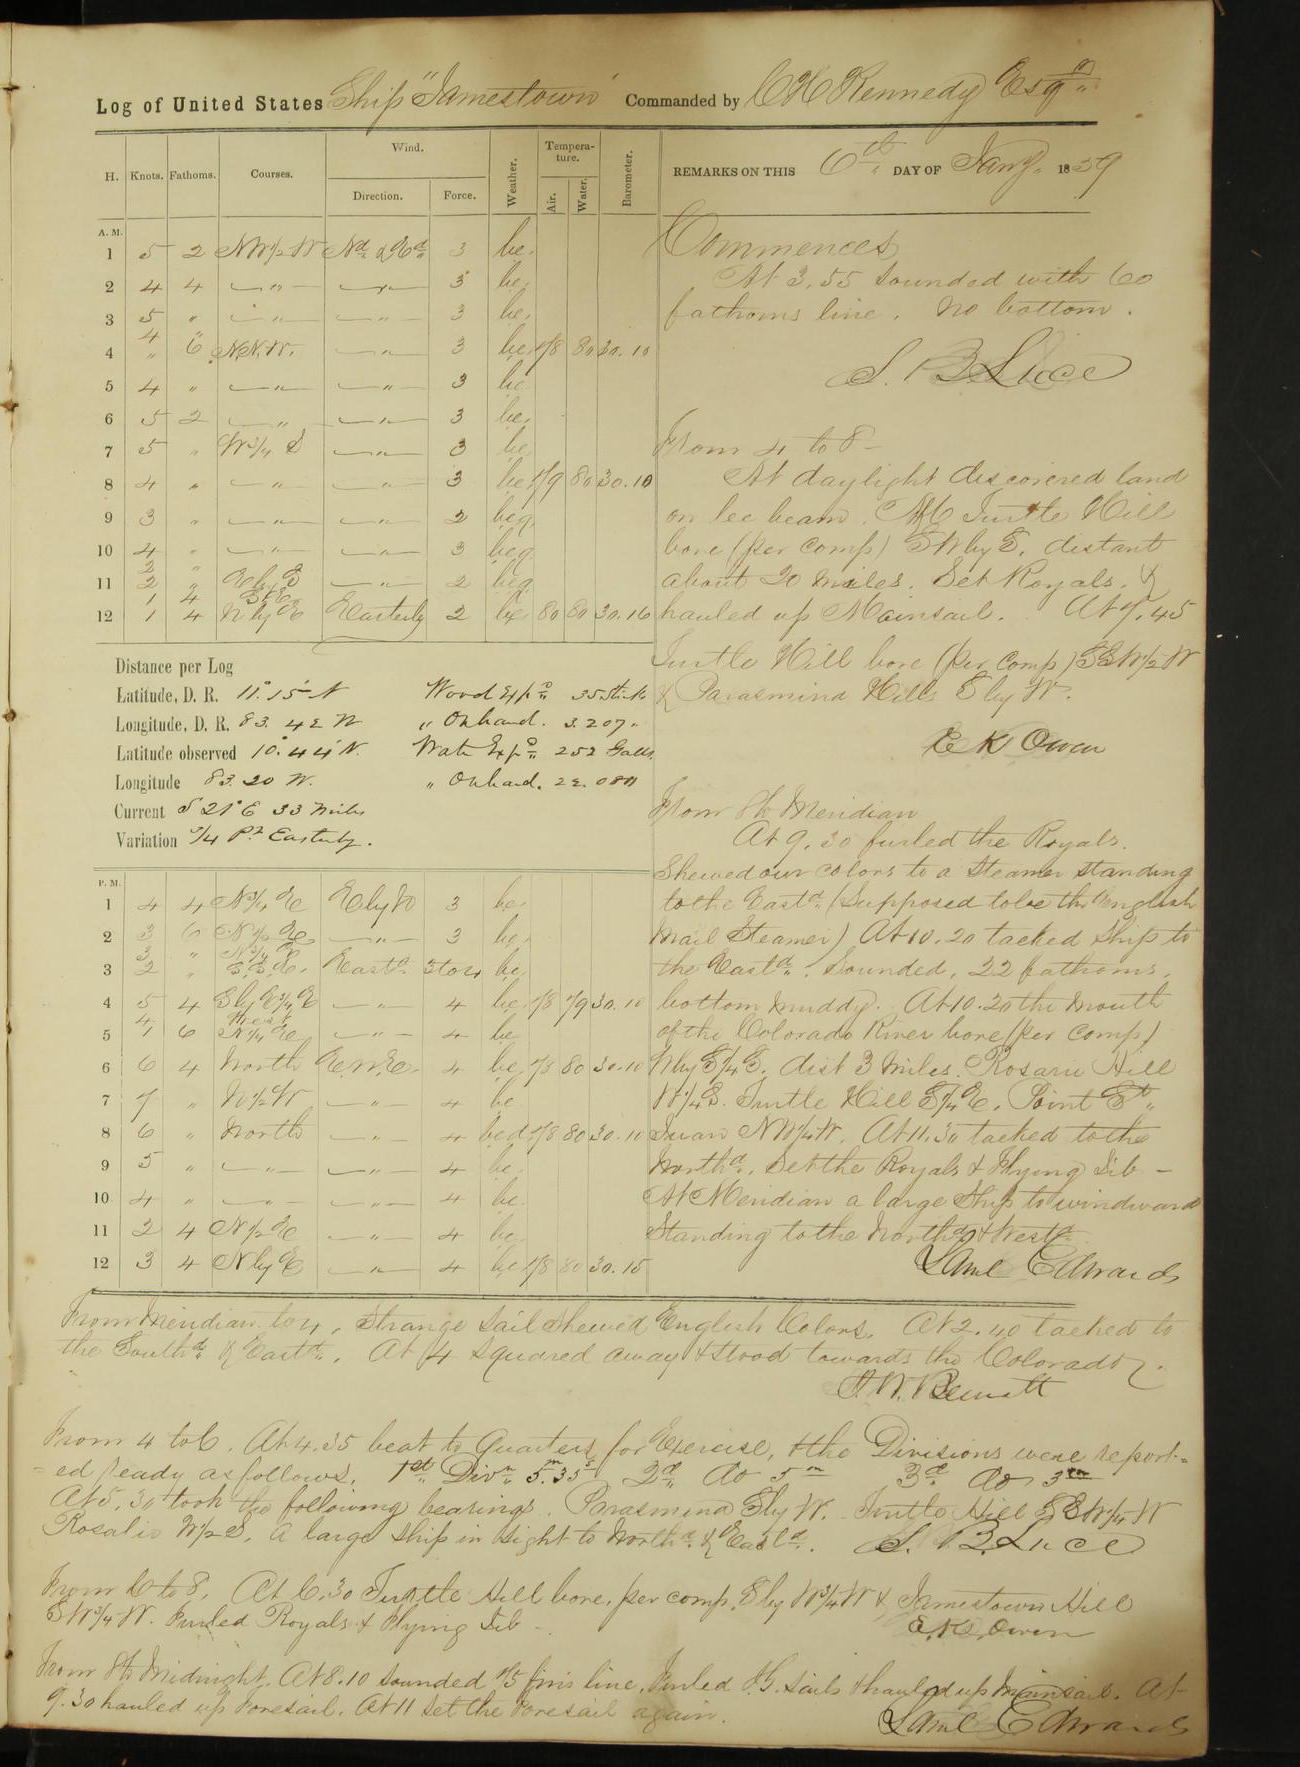 Log of United States Ship "Jamestown" Commanded by C H Kennedy Esqr
H. Knots. Fathoms. Courses. Wind. Direction. Force. Weather. Tempera-ture. Air. Water. Barometer.
REMARKS ON THIS 6th DAY OF Jany. 1859
A. M.
1 5 2 NW½W Nd & Ed 3 bc.
2 4 4 " " 3 bc.
3 5 " " " 3 bc.
4 4 " 6 N.N.W. " 3 bc. 78 80 30.10
5 4 " " " 3 bc
6 5 2 " " 3 bc.
7 5 " W¾S " 3 bc
8 4 " " " 3 bc 79 80 30.10
9 3 " " " 2 bcq.
10 4 " " " 3 bcq
11 2 2 " " E by S " 2 bcq
12 1 1 4 4 N by E Easterly 2 bc 80 80 30.16
Commences
At 3.55 sounded with 60
fathoms line. No bottom.
S. B. Luce
From 4 to 8 -
At daylight discovered land
on lee beam. Turtle Hill
bore (per comp) SW by S. distant
about 20 miles. Set Royals. &
hauled up Mainsail. At 7.45
Turtle Hill bore (per comp) SSW½W
& Parasmina Hills S by W.
E K Owen
Distance per Log
Latitude, D. R. 11° 15' N Wood Expd 35 sticks
Longitude, D. R. 83. 42 W " On hand. 3.207.
Latitude observed 10° 44' N. Water Expd 252 Galls
Longitude 83. 20 W. " On hand. 22.080
Current S 21° E 33 miles
Variation ¾ Pt Easterly.
From 8 to Meridian
At 9.30 furled the Royals.
Shewed our colors to a Steamer standing
to the Eastd. (Supposed to be the English
Mail Steamer) At 10.20 tacked Ship to
the Eastd. Sounded, 22 fathoms,
bottom muddy. At 10.20 the mouth
of the Colorado River bore (per comp)
W by S¼S. dist 3 miles. Rosario Hill
W¼S. Turtle Hill S¼E. Point St
Juan NW¼W. At 11.30 tacked to the
Northd. Set the Royals & Flying Jib -
At Meridian a large Ship to windward
Standing to the Northd & Westd
Saml Edwards
P. M.
1 4 4 N¾E E by N 3 bc
2 3 6 N½E " 3 bc.
3 3 2 " " N¾E S.S.E. Eastd 3 to 4 bc
4 5 4 S by E¾E " 4 bc. 78 79 30.10
5 4 1 6 West N¼E " 4 bc
6 6 4 North E.N.E. 4 bc 78 80 30.10
7 7 " N½W " 4 bc
8 6 " North " 4 bcd 78 80 30.10
9 5 " " " 4 bc.
10 4 " " " 4 bc
11 2 4 N½E " 4 bc.
12 3 4 N by E " 4 bc 78 80 30.15
From Meridian to 4. Strange sail shewed English Colors. At 2.40 tacked to
the Southd & Eastd. At 4 squared away & stood towards the Colorado.
J. W. Bennett
From 4 to 6. At 4.35 beat to Quarters for Exercise, & the Divisions were report-
-ed ready as follows. 1st Divn 5m 35s 2d Do 5m 3d do 3m
At 5.30 took the following bearings. Parasmina S by W. Turtle Hill SSW¼W
Rosalio W½S. A large ship in sight to Northd & Eastd. S. B. Luce
From 6 to 8. At 6.30 Turtle Hill bore, per comp. S by W¾W & Jamestown Hill
SW¾W. Furled Royals & Flying Jib -
E. K. Owen
From 8 to Midnight. At 8.10 sounded 75 fms line. Furled T. G. sails & hauled up Mainsail. At
9.30 hauled up Foresail. At 11 set the Foresail again.
Saml Edwards